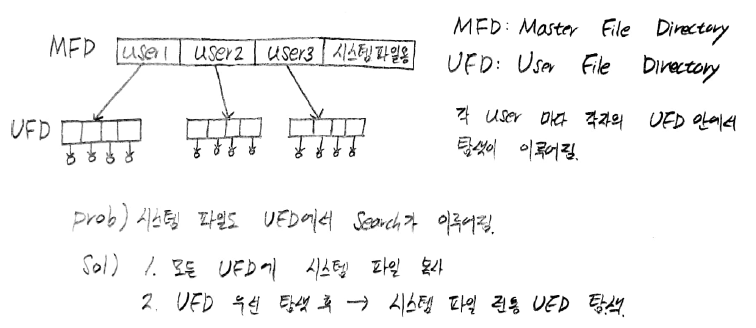 MFD user1 user2 user3 시스템파일용
MFD: Master File Directory
UFD: User File Directory
UFD
각 user 마다 각자의 UFD 안에서
탐색이 이루어짐.
prob) 시스템 파일도 UFD에서 Search가 이루어짐.
Sol) 1. 모든 UFD에 시스템 파일 복사
2. UFD 우선 탐색 후 → 시스템 파일 전용 UFD 탐색.